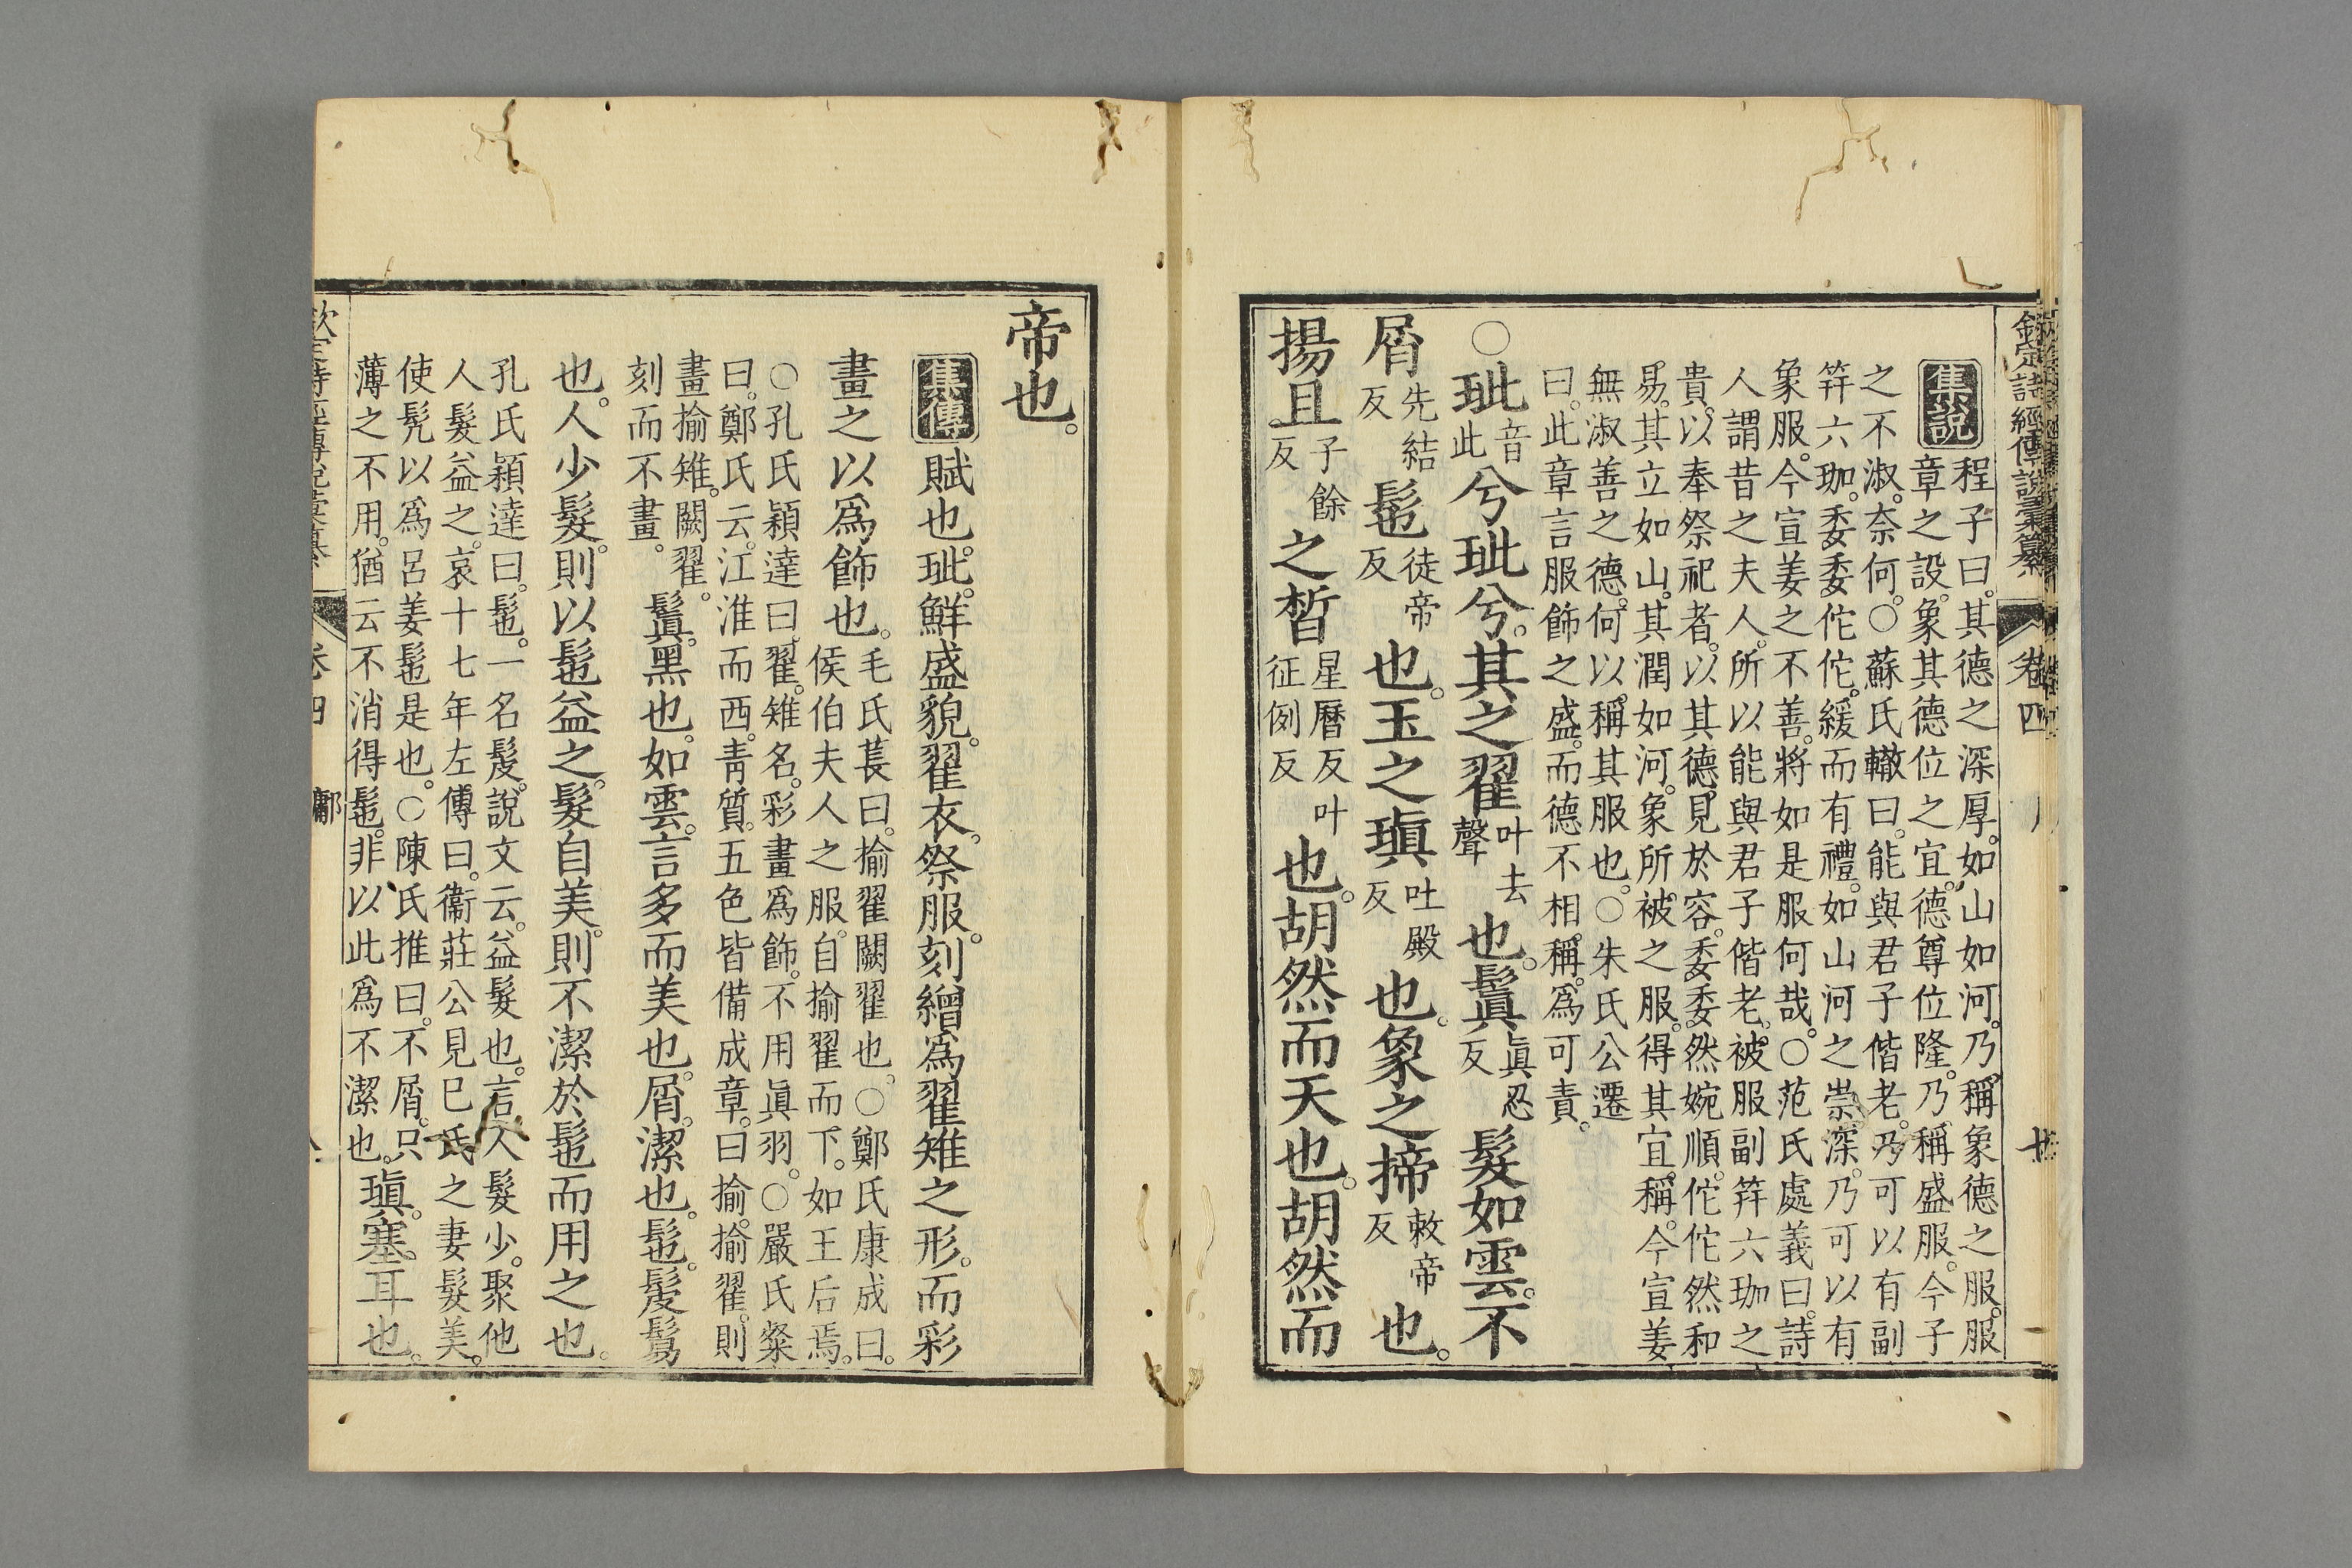 欽定詩經傳說彙纂 卷四
集說
程子曰。其德之深厚。如山如河。乃稱象德之服。服
章之設。象其德位之宜。德尊位隆。乃稱盛服。今子
之不淑。奈何。○蘇氏轍曰。能與君子偕老。乃可以有副
笄六珈。委委佗佗。緩而有禮。如山河之崇深。乃可以有
象服。今宣姜之不善。將如是服何哉。○范氏處義曰。詩
人謂昔之夫人。所以能與君子偕老。被服副笄六珈之
貴。以奉祭祀者。以其德見於容。委委然婉順。佗佗然和
易。其立如山。其潤如河。象所被之服。得其宜稱。今宣姜
無淑善之德。何以稱其服也。○朱氏公遷
曰。此章言服飾之盛。而德不相稱。爲可責。
○玼音此兮玼兮。其之翟叶去聲也。鬒眞忍反髮如雲。不
屑先結反髢徒帝反也。玉之瑱吐殿反也。象之揥敕帝反也。
揚且子餘反之皙星曆反叶征例反也。胡然而天也。胡然而
帝也。
集傳 賦也。玼。鮮盛貌。翟衣。祭服。刻繒爲翟雉之形。而彩
畫之以爲飾也。
毛氏萇曰。揄翟闕翟也。○鄭氏康成曰。
侯伯夫人之服。自揄翟而下。如王后焉。
○孔氏穎達曰。翟。雉名。彩畫爲飾。不用眞羽。○嚴氏粲
曰。鄭氏云。江淮而西。靑質。五色皆備成章。曰揄。揄翟。則
畫揄雉。闕翟。
刻而不畫。
鬒。黑也。如雲。言多而美也。屑。潔也。髢。髲鬄
也。人少髮。則以髢益之。髮自美。則不潔於髢而用之也。
孔氏穎達曰。髢。一名髲。說文云。益髮也。言人髮少。聚他
人髮益之。哀十七年左傳曰。衞莊公見巳氏之妻髮美。
使髡以爲呂姜髢是也。○陳氏推曰。不屑。只
薄之不用。猶云不消得髢。非以此爲不潔也。
瑱。塞耳也。
欽定詩經傳說彙纂 卷四 鄘